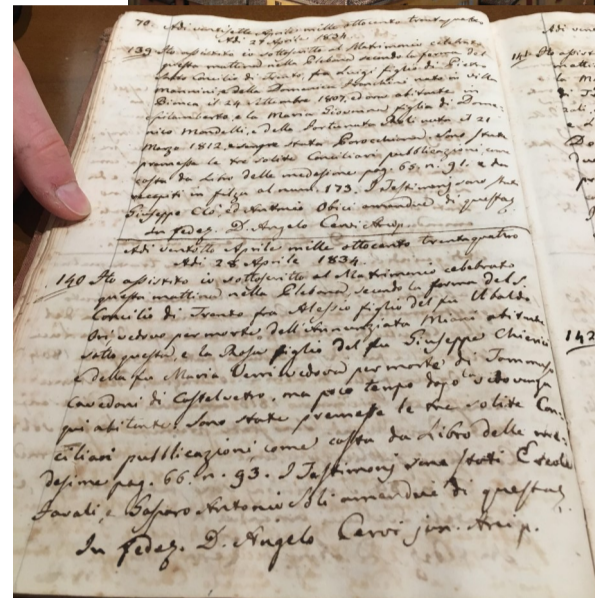 70. Adi ventisette Aprile mille ottocento trentaquattro
Adi 27 Aprile 1834.
139 Ho assistito io sottoscritto al Matrimonio celebrato
questa mattina nella Plebana secondo la forma del
Sacro Concilio di Trento, fra Luigi figlio di Pietro
Mannini, e della Domenica nato in villa
Bianca il 24 settembre 1807, ed ora abitante in
e la Maria Giovanna figlia di Dome-
nico Mondelli, e della Fortunata nata il 21
Marzo 1812, e sempre stata Parocchiana. Sono state
premesse le tre solite Conciliari pubblicazioni, come
costa da Libro delle medesime pag. 65. n. 91. e da
recapiti in filza al num. 173. I Testimonj sono stati
Giuseppe Cloè, ed Antonio Obici amendue di questa
In fede D. Angelo Cervi Arcip.
Adi ventotto Aprile mille ottocento trentaquattro
Adi 28 Aprile 1834.
140 Ho assistito io sottoscritto al Matrimonio celebrato
questa mattina nella Plebana, secondo la forma del S.
Concilio di Trento fra Alessio figlio del fu Ubaldo
vedovo per morte dell'Annunziata Miani abitante
sotto questa, e la Rosa figlia del fu Giuseppe Chierici
e della fu Maria Verri vedova per morte di Tommaso
Cavedoni di Castelvetro, ma poco tempo dopo vedovanza
qui abitante. Sono state premesse le tre solite Con-
ciliari pubblicazioni come costa da Libro delle me-
desime pag. 66. n. 93. I Testimonj sono stati Ercole
Tavali, e Gasparo Antonio Soli amendue di questa
In fede D. Angelo Cervi jun. Arcip.
Adi
141 Ho
142